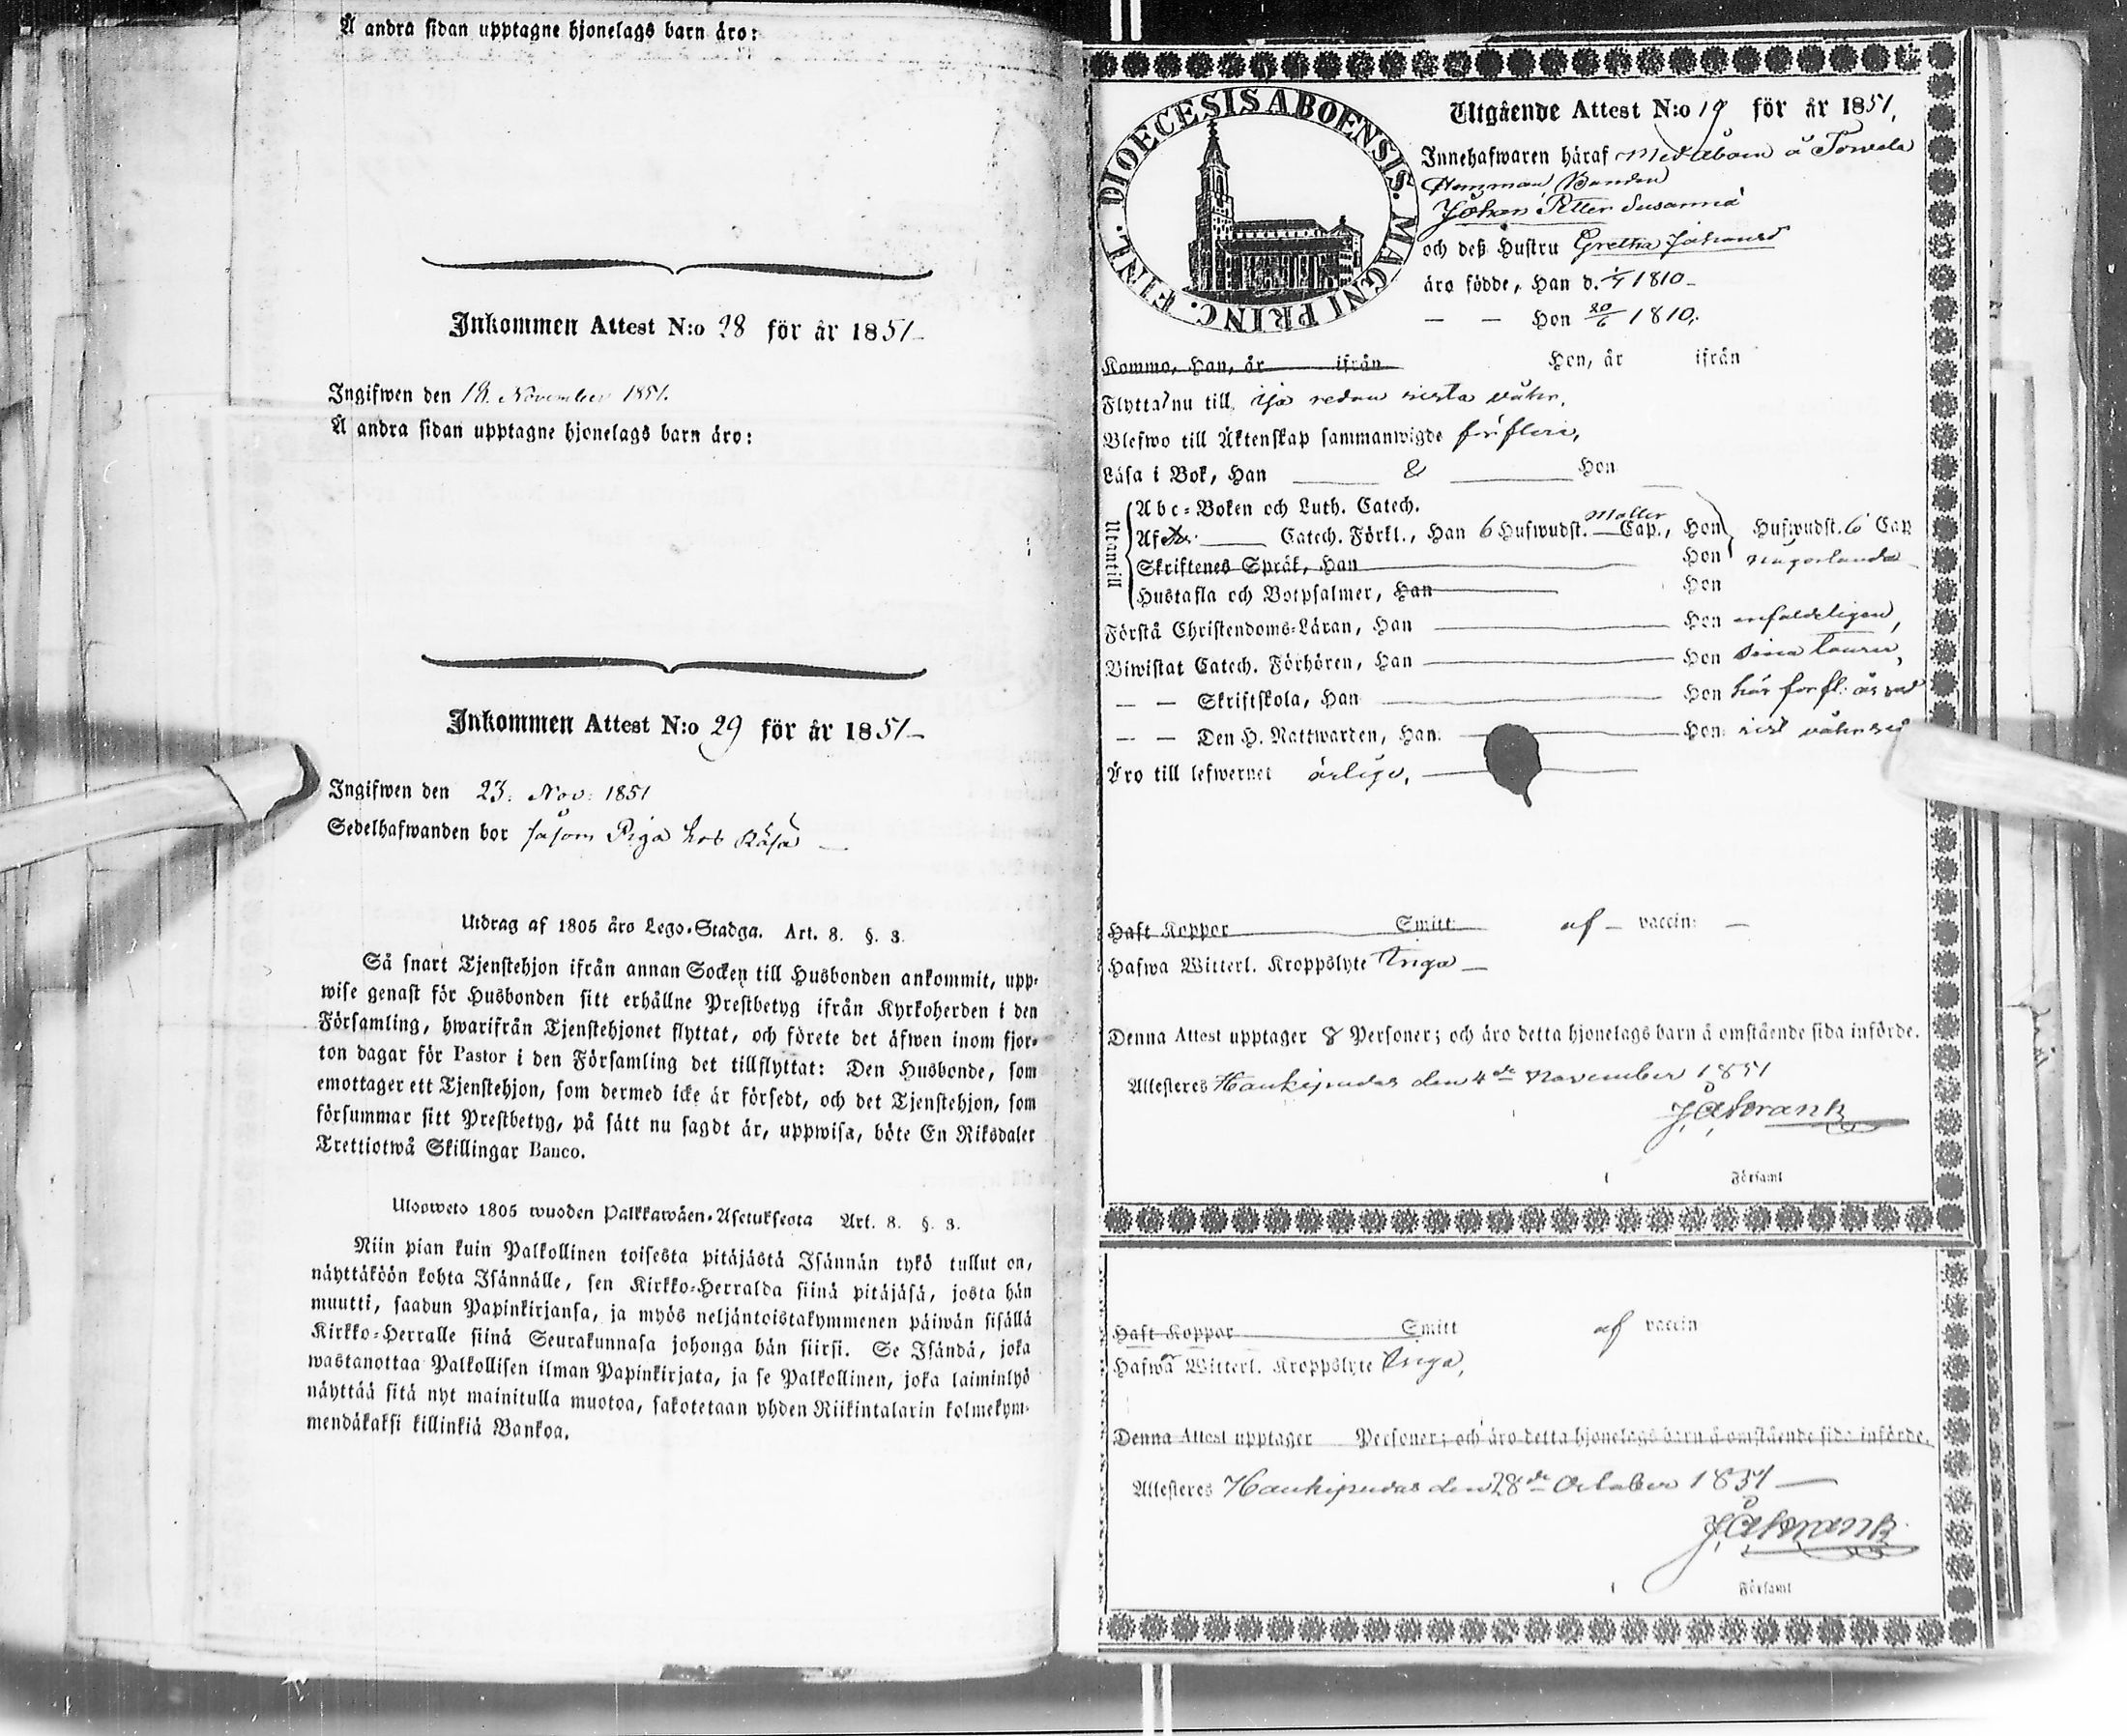 Å andra sidan upptagne hjonelags barn äro:
Inkommen Attest N:o 28 för år 1851
Ingifwen den 18. November 1851.
Å andra sidan upptagne hjonelags barn äro:
Inkommen Attest N:o 29 för år 1851
Ingifwen den 23. Nov: 1851
Sedelhafwanden bor såsom Piga hos Räsä
Utdrag af 1805 års Lego-Stadga. Art. 8. §. 3.
Så snart Tjenstehjon ifrån annan Socken till Husbonden ankommit, upp-
wise genast för Husbonden sitt erhållne Prestbetyg ifrån Kyrkoherden i den
Församling, hwarifrån Tjenstehjonet flyttat, och förete det äfwen inom fjor-
ton dagar för Pastor i den Församling det tillflyttat: Den Husbonde, som
emottager ett Tjenstehjon, som dermed icke är försedt, och det Tjenstehjon, som
försummar sitt Prestbetyg, på sätt nu sagdt är, uppwisa, böte En Riksdaler
Trettiotwå Skillingar Banco.
Ulosweto 1805 wuoden Palkkawäen-Asetuksesta Art. 8. §. 3.
Niin pian kuin Palkollinen toisesta pitäjästä Isännän tykö tullut on,
näyttäköön kohta Isännälle, sen Kirkko-Herralda siinä pitäjäsä, josta hän
muutti, saadun Papinkirjansa, ja myös neljäntoistakymmenen päiwän sisällä
Kirkko-Herralle siinä Seurakunnasa johonga hän siirsi. Se Isändä, joka
wastanottaa Palkollisen ilman Papinkirjata, ja se Palkollinen, joka laiminlyö
näyttää sitä nyt mainitulla muotoa, sakotetaan yhden Riikintalarin kolmekym-
mendäkaksi killinkiä Bankoa.
DIOECESIS ABOENSIS. MAGNI PRINC. FINL.
Utgående Attest N:o 19 för år 1851,
Innehafwaren häraf Medåboen å Towela
Hemman, Bonden
Johan Petter Susanna
och deß Hustru Gretha Johansd
äro födde, Han d. 1810
— — Hon 20/6 1810,
Kommo, Han, år ifrån Hon, år ifrån
Flytta nu till Ijo redan sista våhr,
Blefwo till Äktenskap sammanwigde för flere,
Läsa i Bok, Han & Hon
Utantill
Abc-Boken och Luth. Catech.
Af Catech. Förkl., Han 6 Hufwudst. Cap., Hon Hufwudst. 6 Cap
Skriftenes Språk, Han Hon någorlunda
Hustafla och Botpsalmer, Han Hon
Förstå Christendoms-Läran, Han Hon enfaldeligen,
Biwistat Catech. Förhören, Han Hon sina tourer,
— — Skriftskola, Han Hon här for fl: år sed
— — Den H. Nattwarden, Han. Hon sist våhras
Äro till lefwernet ärlige,
Haft Koppor Smitt af — vaccin: —
Hafwa Witterl. Kroppslyte Inga
Denna Attest upptager 8 Personer; och äro detta hjonelags barn å omstående sida införde.
Attesteres Haukipudas den 4de November 1851
Församl
Haft Koppor Smitt af vaccin
Hafwa Witterl. Kroppslyte Inga,
Denna Attest upptager Personer; och äro detta hjonelags barn å omstående sida införde.
Attesteres Haukipudas den 28de October 1851
Församl